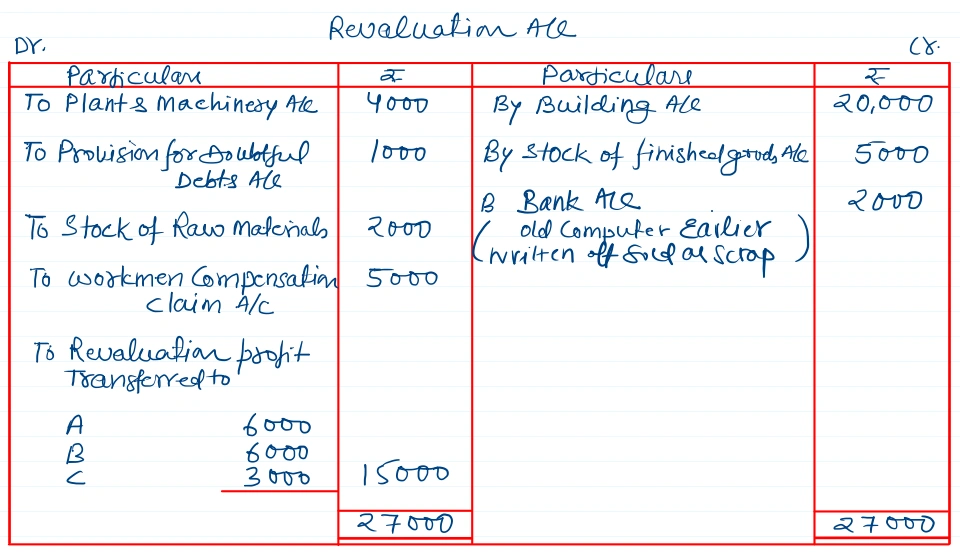 Revaluation A/c
Dr. Cr.
Particulars ₹ Particulars ₹
To Plant & Machinery A/c 4000 By Building A/c 20,000
To Provision for Doubtful 1000 By Stock of finished goods A/c 5000
Debts A/c
B Bank A/c 2000
To Stock of Raw Materials 2000 (old Computer Earlier
written off sold as scrap)
To workmen Compensation 5000
claim A/c
To Revaluation profit
Transferred to
A 6000
B 6000
C 3000 15000
27000 27000